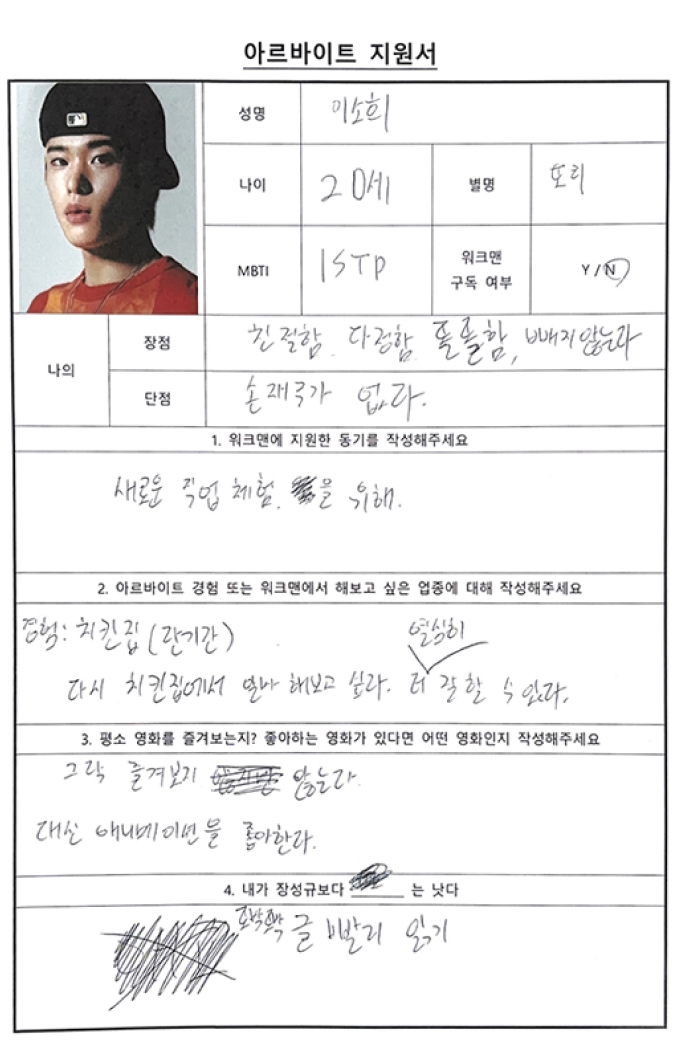 아르바이트 지원서
성명 이소희
나이 20세 별명 또리
MBTI ISTP 워크맨 구독 여부 Y / N
나의 장점 친절함. 다정함. 털털함, 빼지않는다
단점 손재주가 없다.
1. 워크맨에 지원한 동기를 작성해주세요
새로운 직업 체험. 을 위해.
2. 아르바이트 경험 또는 워크맨에서 해보고 싶은 업종에 대해 작성해주세요
경험: 치킨집 (단기간)
열심히
다시 치킨집에서 해보고 싶다. 더 잘할 수 있다.
3. 평소 영화를 즐겨보는지? 좋아하는 영화가 있다면 어떤 영화인지 작성해주세요
그닥 즐겨보지 않는다.
대신 애니메이션을 좋아한다.
4. 내가 장성규보다 ______ 는 낫다
또박또박 글 빨리 읽기